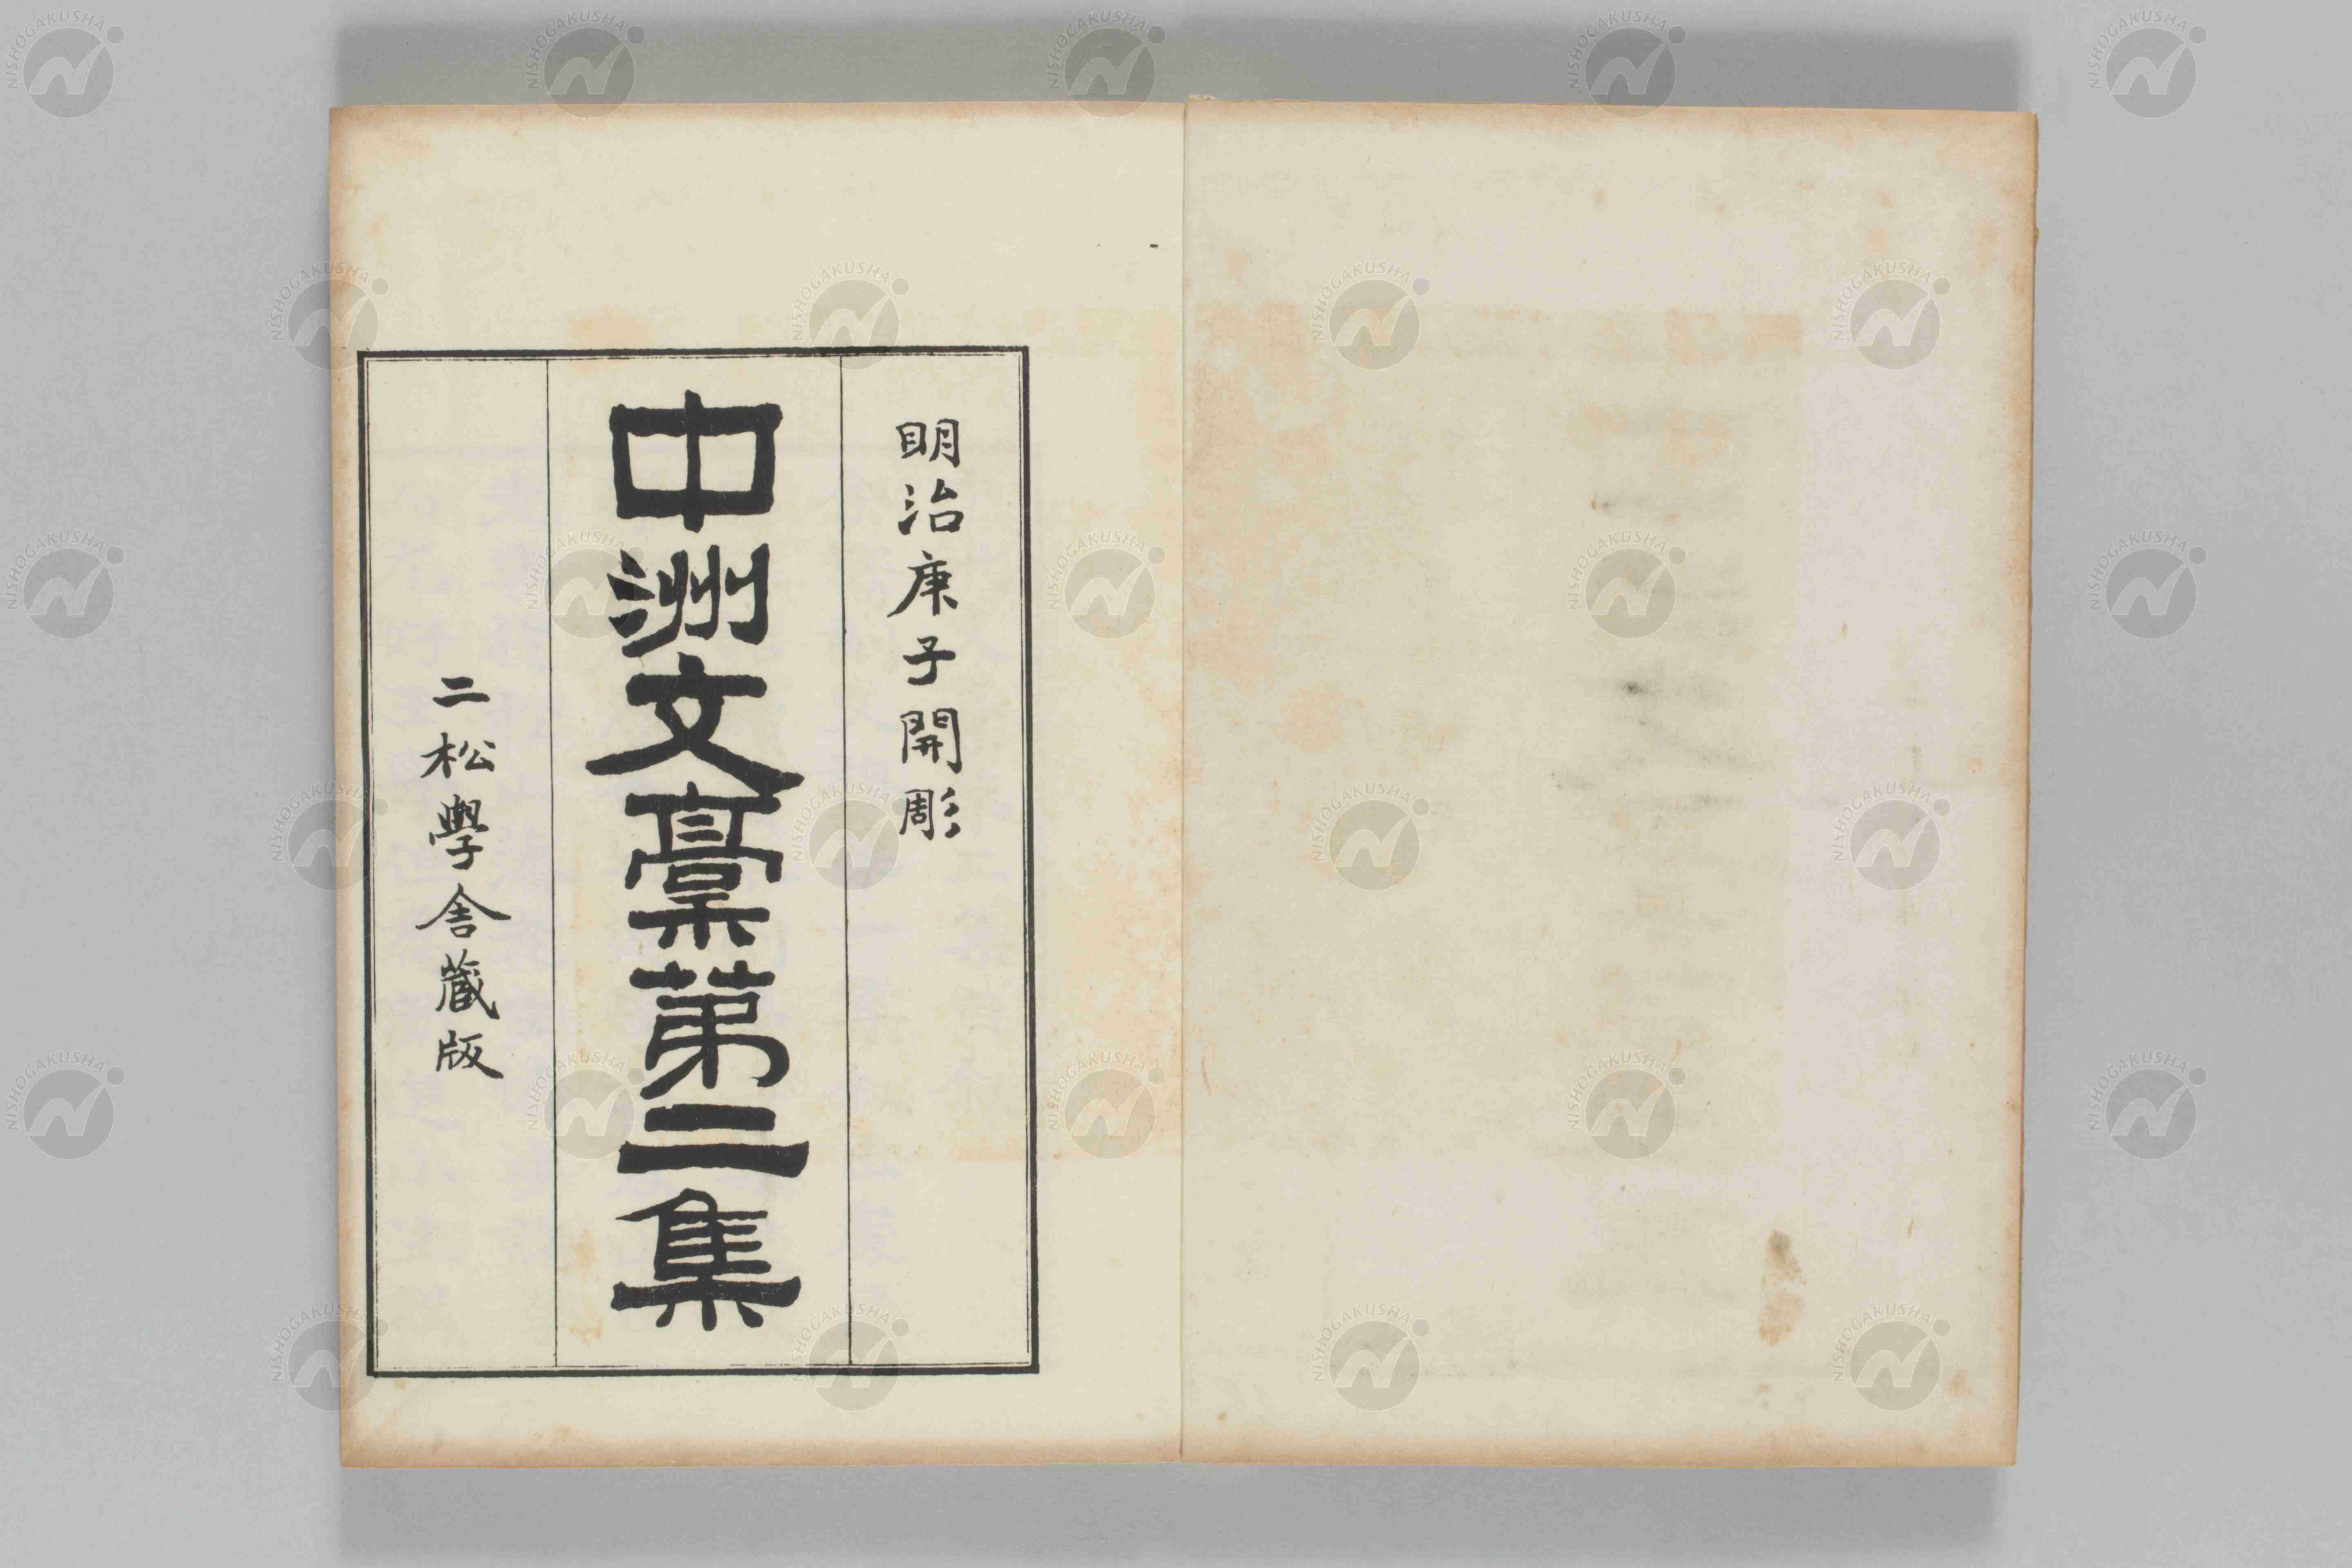 明治庚子開彫
中洲文稾第二集
二松學舍藏版
NISHOGAKUSHA